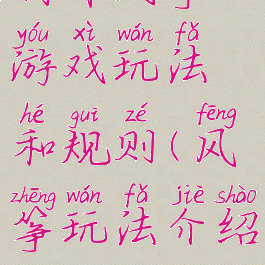 yóu xì wán fǎ
游戏玩法
hé guī zé fēng
和规则(风
zhēng wán fǎ jiè shào
筝玩法介绍